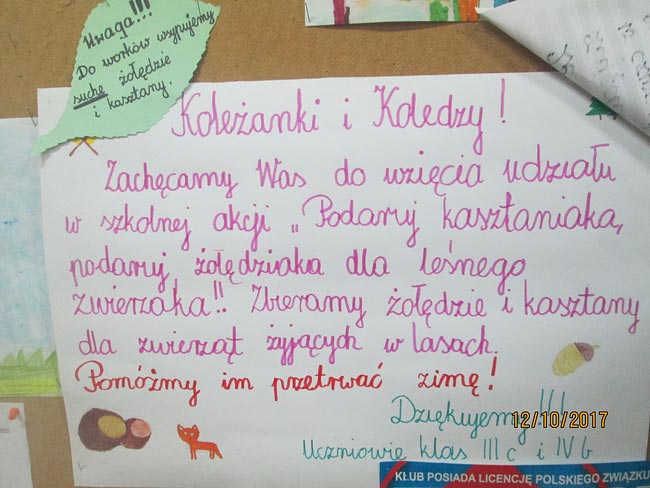 Uwaga!!!
Do worków wsypujemy
suche żołędzie
i kasztany.
Koleżanki i Koledzy!
Zachęcamy Was do wzięcia udziału
w szkolnej akcji „Podaruj kasztaniaka,
podaruj żołędziaka dla leśnego
zwierzaka”!! Zbieramy żołędzie i kasztany
dla zwierząt żyjących w lasach.
Pomóżmy im przetrwać zimę!
Dziękujemy!!!
12/10/2017
Uczniowie klas III c i IV b
KLUB POSIADA LICENCJĘ POLSKIEGO ZWIĄZKU